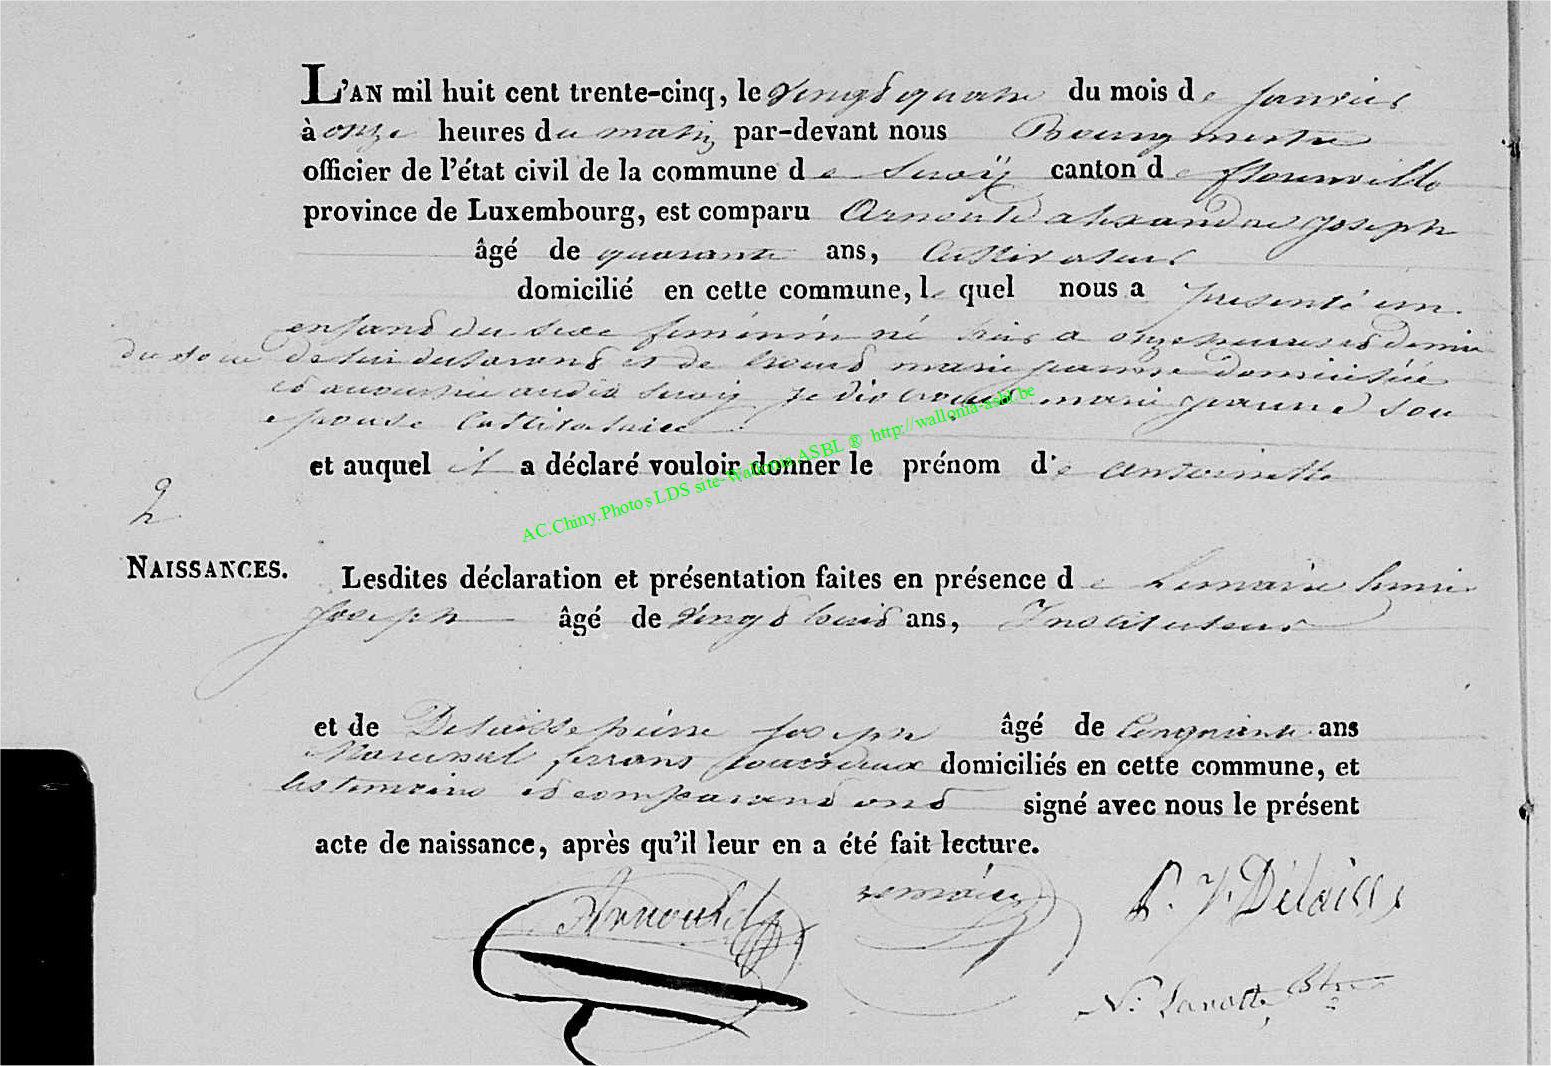 L'AN mil huit cent trente-cinq, le vingt quatre du mois de janvier
à onze heures du matin par-devant nous Bourgmestre
officier de l'état civil de la commune de Suxÿ canton de florenville
province de Luxembourg, est comparu Arnould alexandre joseph
âgé de quarante ans, Cultivateur
domicilié en cette commune, lequel nous a presenté un
enfant du sexe féminin né hier a onze heures et demie
du soir de lui declarant et de marie jeanne domiciliée
et audit Suxy je dis marie jeanne son
epouse Cultivatrice
et auquel il a déclaré vouloir donner le prénom de antoinette
AC.Chiny.Photos LDS site-Wallonia ASBL ® http://wallonia-asbl.be
2
NAISSANCES.
Lesdites déclaration et présentation faites en présence de Lemaire henri
joseph âgé de vingt huit ans, Instituteur
et de Delaisse pierre joseph âgé de Cinquante ans
Marechal ferrant tous deux domiciliés en cette commune, et
les temoins et comparant ont signé avec nous le présent
acte de naissance, après qu'il leur en a été fait lecture.
Arnould
P. J. Delaisse